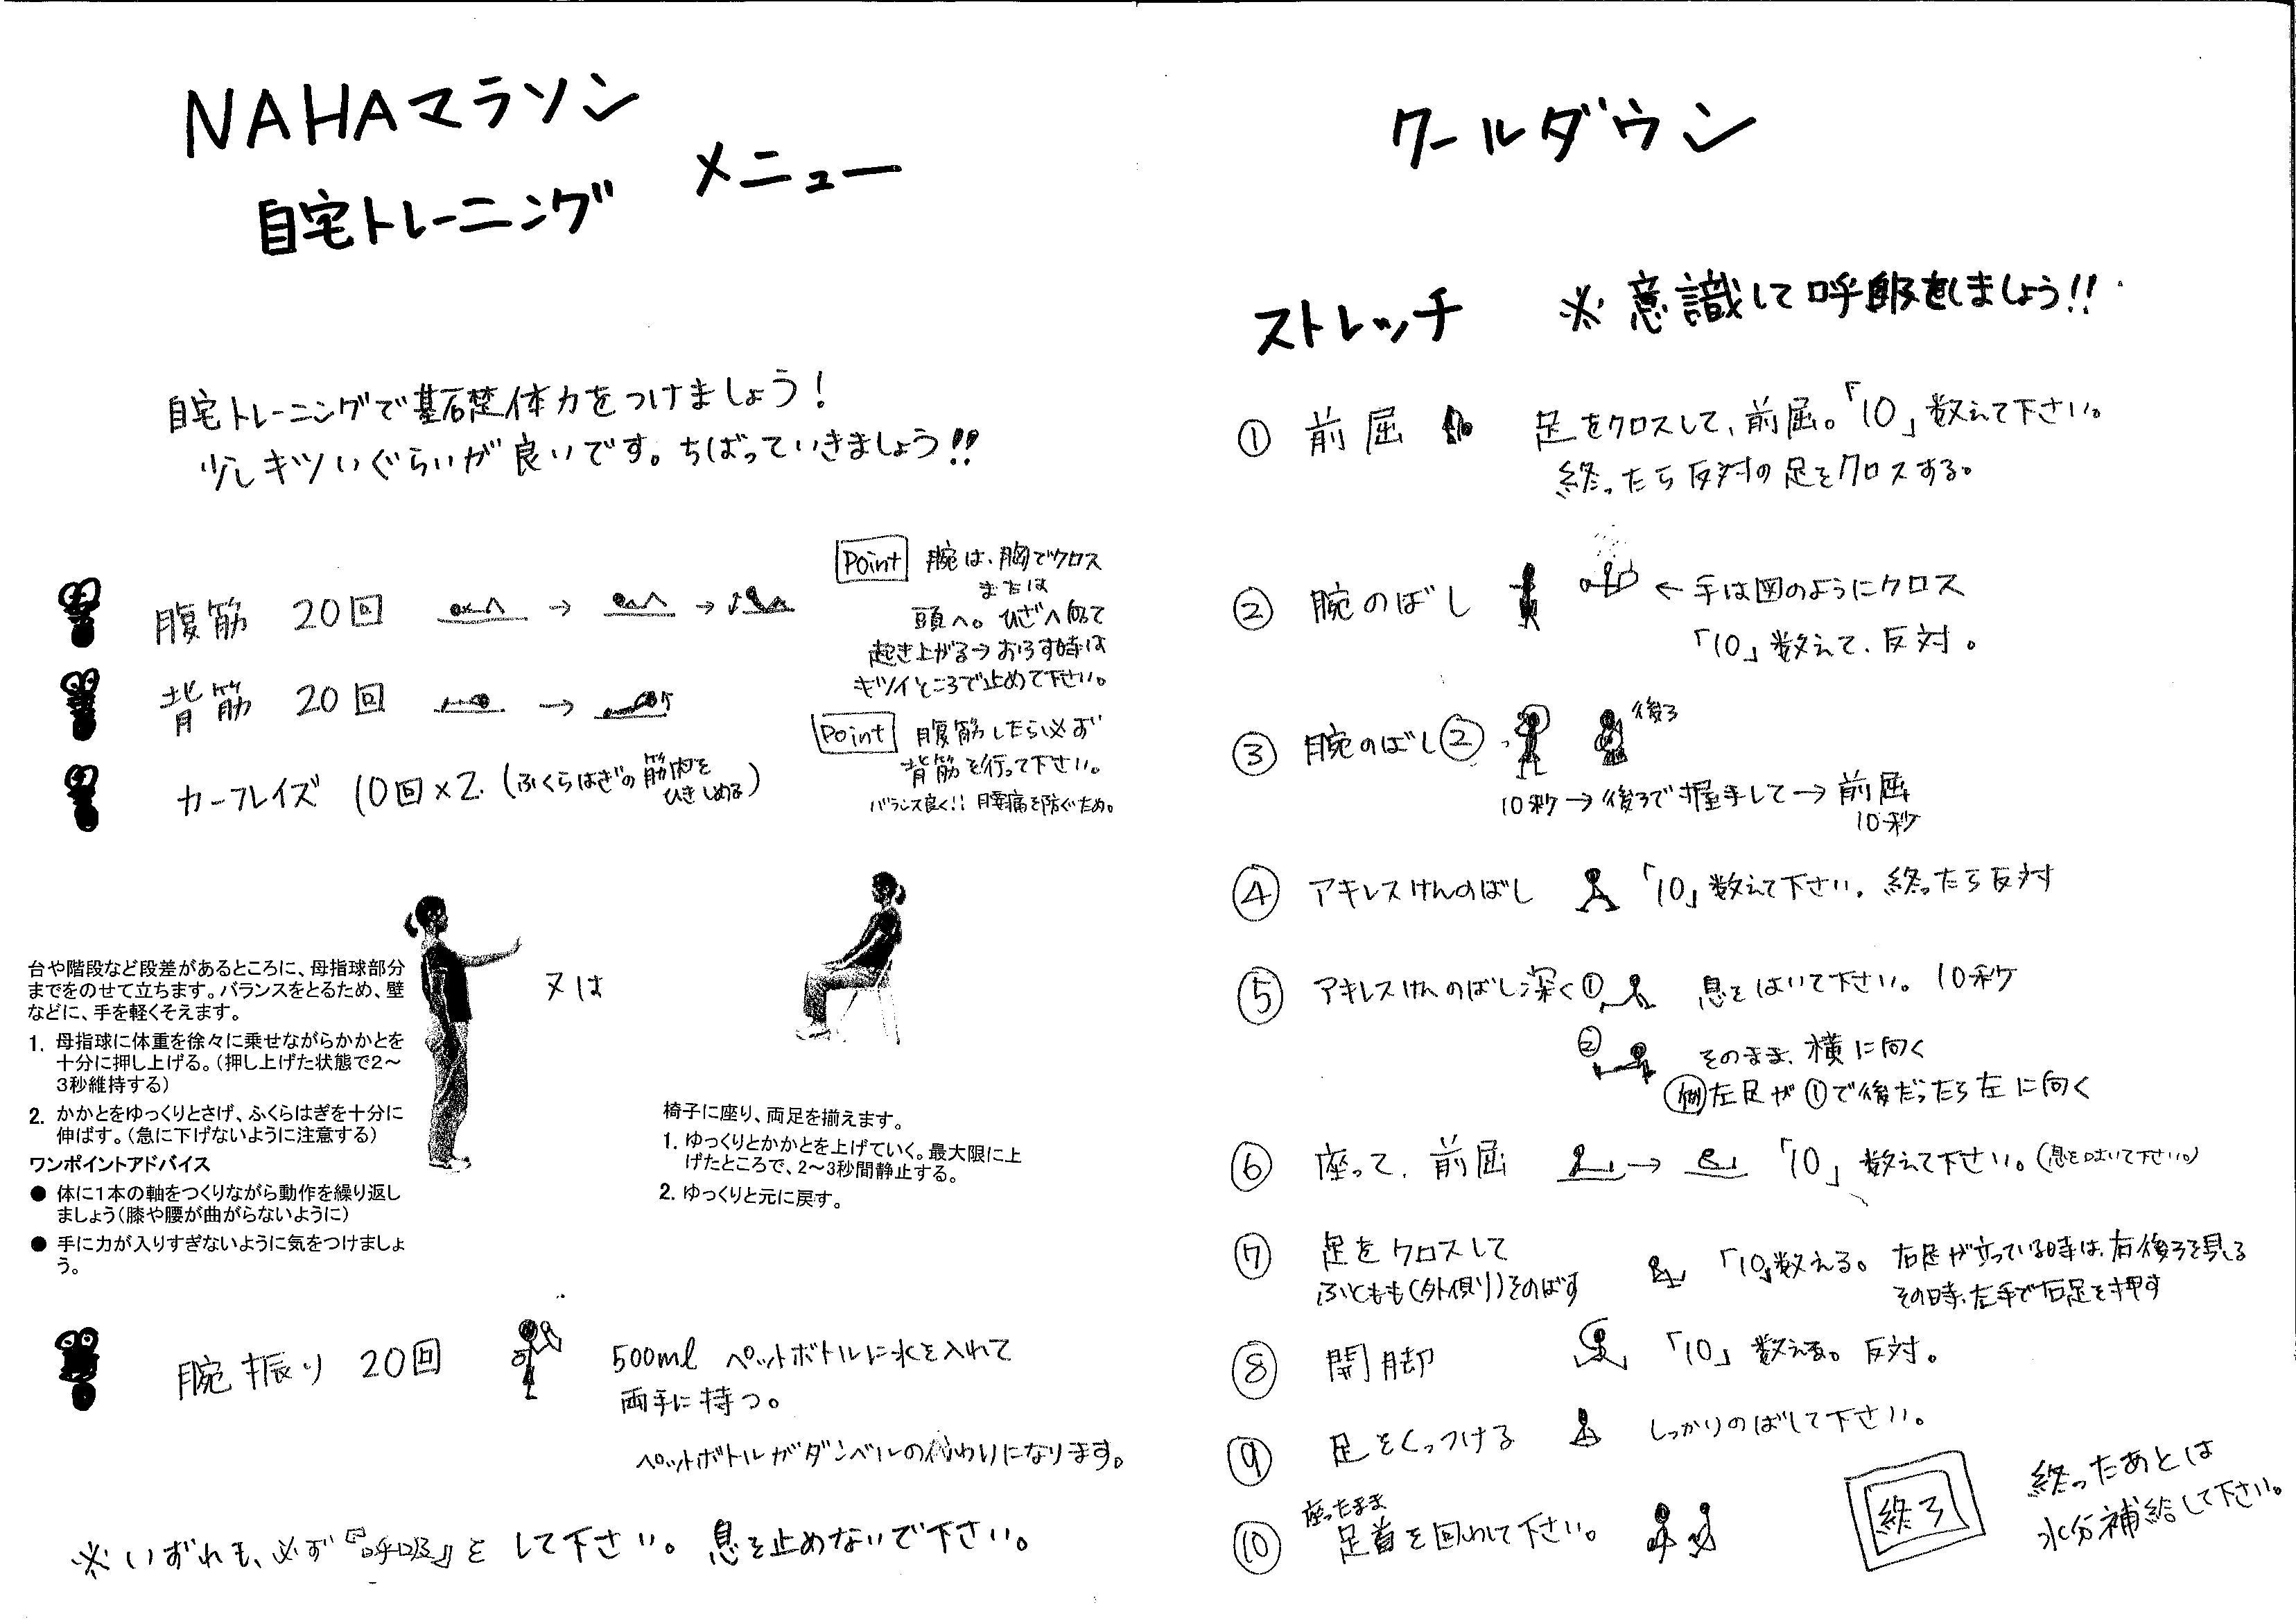 NAHAマラソン
自宅トレーニング メニュー
自宅トレーニングで基礎体力をつけましょう！
少しキツいぐらいが良いです。ちばっていきましょう!!
腹筋 20回
Point 腕は、胸でクロス
または
頭へ。ひざへ向って
起き上がる→おろす時は
キツイところで止めて下さい。
背筋 20回
Point 腹筋したら必ず
背筋を行って下さい。
バランス良く!! 腰痛を防ぐため。
カーフレイズ 10回×2.（ふくらはぎの筋肉を
ひきしめる）
台や階段など段差があるところに、母指球部分
までをのせて立ちます。バランスをとるため、壁
などに、手を軽くそえます。
1. 母指球に体重を徐々に乗せながらかかとを
十分に押し上げる。（押し上げた状態で2〜
3秒維持する）
2. かかとをゆっくりとさげ、ふくらはぎを十分に
伸ばす。（急に下げないように注意する）
ワンポイントアドバイス
● 体に1本の軸をつくりながら動作を繰り返し
ましょう（膝や腰が曲がらないように）
● 手に力が入りすぎないように気をつけましょ
う。
又は
椅子に座り、両足を揃えます。
1. ゆっくりとかかとを上げていく。最大限に上
げたところで、2〜3秒間静止する。
2. ゆっくりと元に戻す。
腕振り 20回
500ml ペットボトルに水を入れて
両手に持つ。
ペットボトルがダンベルの代わりになります。
※いずれも、必ず『呼吸』を して下さい。息を止めないで下さい。
クールダウン
ストレッチ ※意識して呼吸をしましょう!!
① 前屈 足をクロスして、前屈。「10」数えて下さい。
終ったら反対の足をクロスする。
② 腕のばし ←手は図のようにクロス
「10」数えて、反対。
③ 腕のばし② 後ろ
10秒→後ろで握手して→前屈
10秒
④ アキレスけんのばし 「10」数えて下さい。終ったら反対
⑤ アキレスけんのばし深く① 息をはいて下さい。10秒
② そのまま、横に向く
例 左足が①で後だったら左に向く
⑥ 座って、前屈 → 「10」数えて下さい。（息をはいて下さい。）
⑦ 足をクロスして
ふともも（外側り）をのばす
「10」数える。右足が立っている時は、右後ろを見る
その時、左手で右足を押す
⑧ 開脚 「10」数える。反対。
⑨ 足をくっつける しっかりのばして下さい。
⑩ 座ったまま
足首を回わして下さい。
終了
終ったあとは
水分補給して下さい。